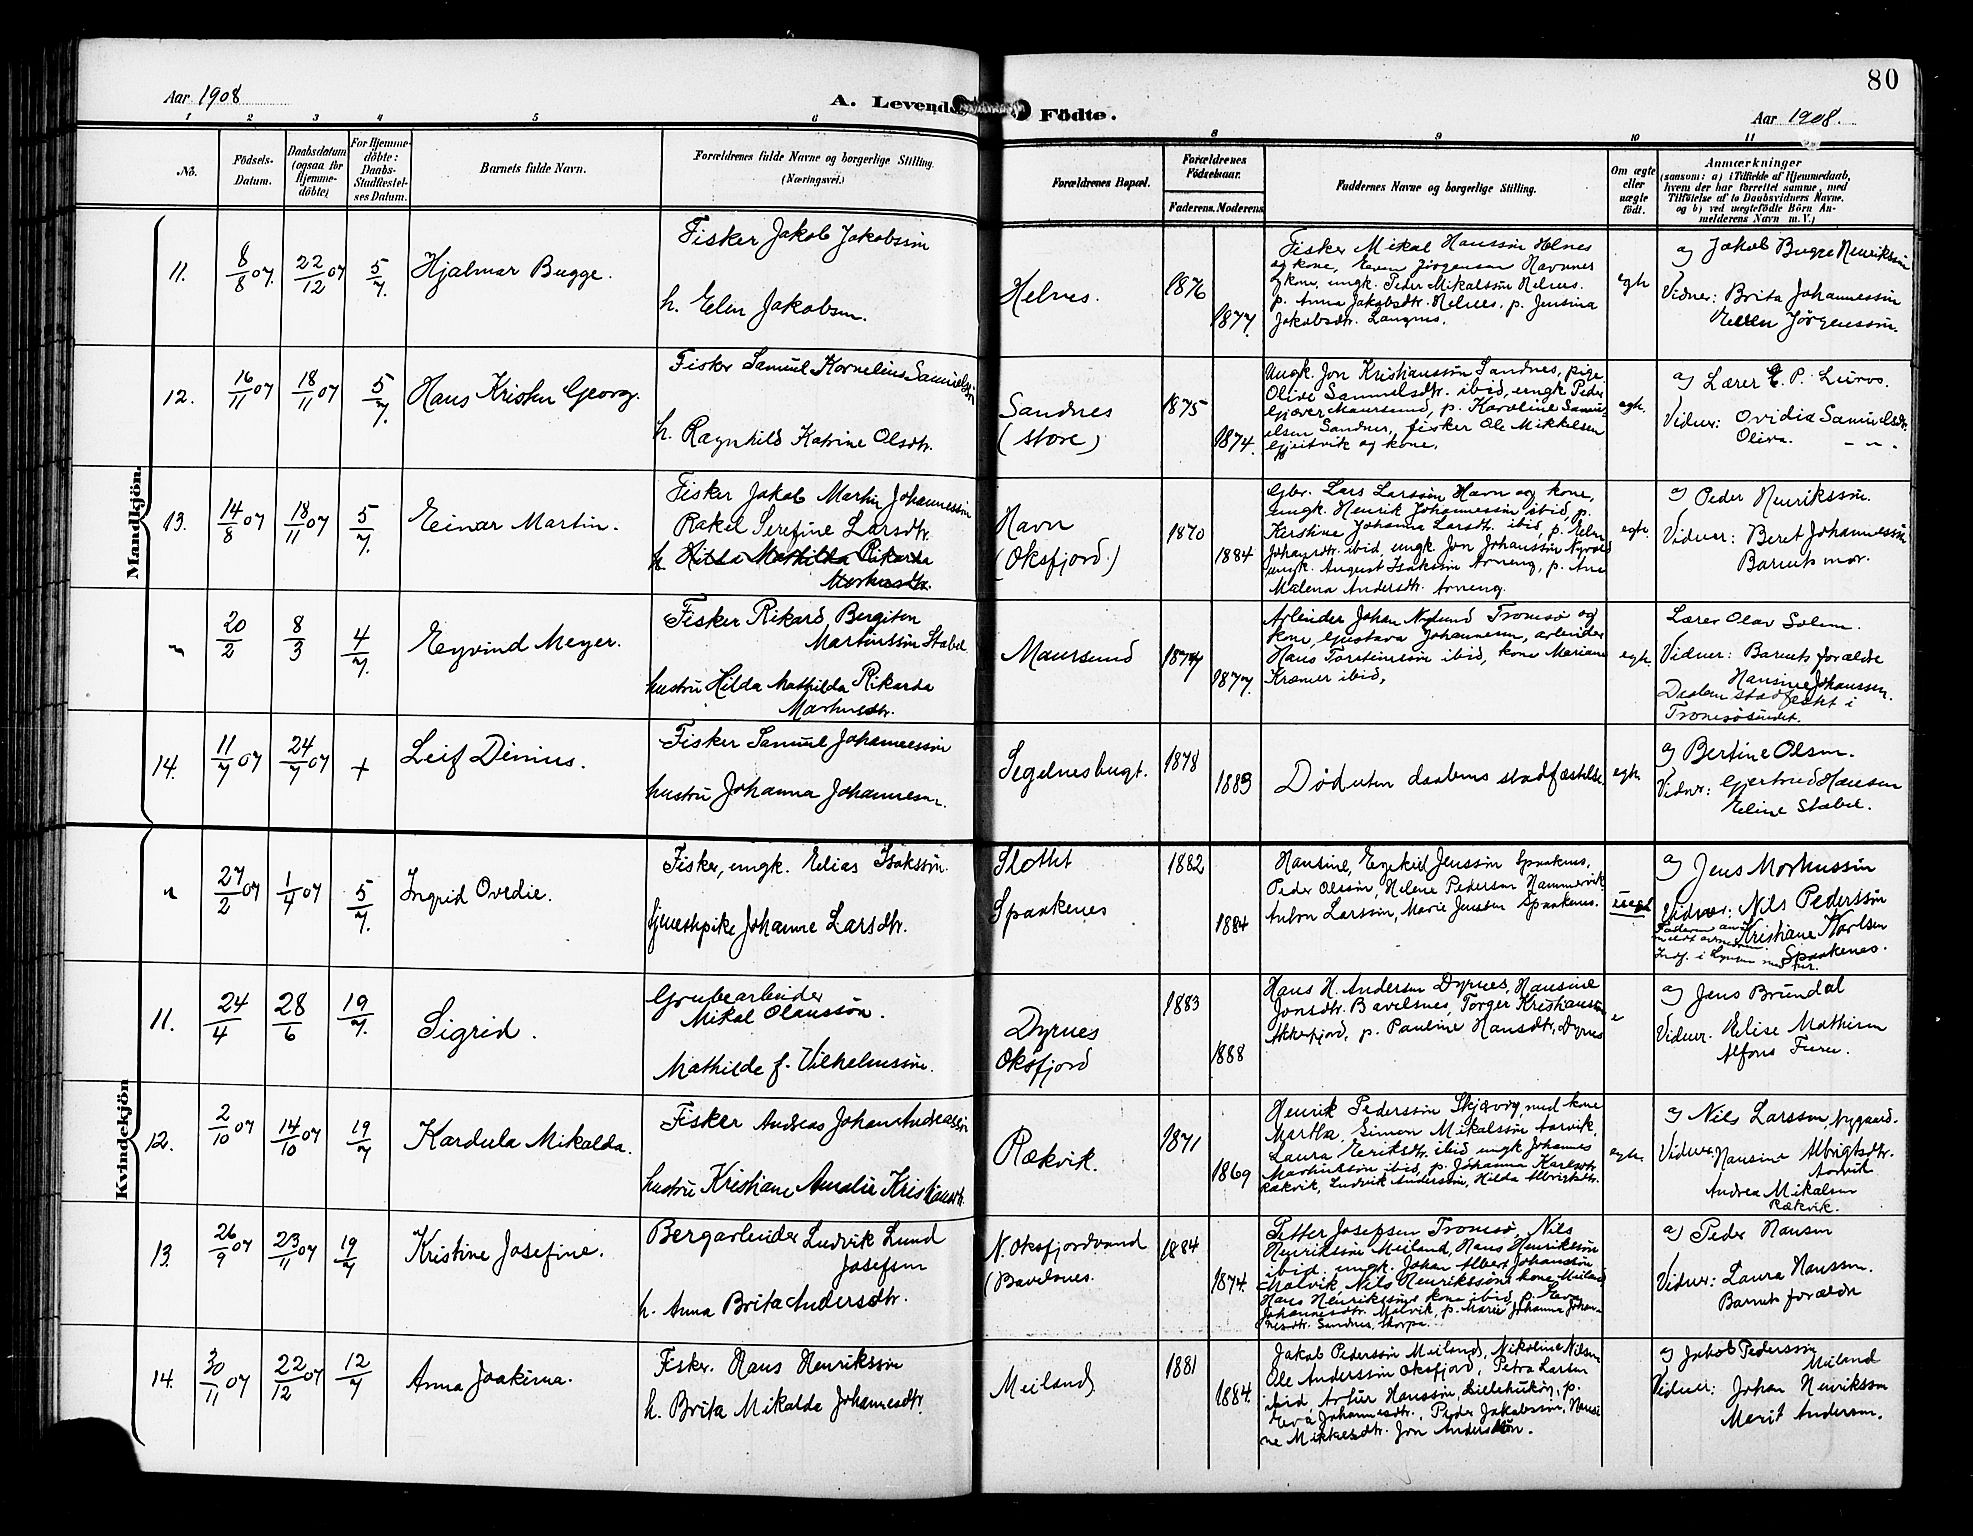 80
Aar 1908
A. Levende Födte.
Aar 1908.
1 2 3 4 5 6 8 9 10 11
No.
Födsels-Datum.
Daabsdatum (ogsaa for Hjemmedöbte)
For Hjemmedöbte: Daabs-Stadfæstelses Datum.
Barnets fulde Navn.
Forældrenes fulde Navne og borgerlige Stilling.
(Næringsvei.)
Forældrenes Bopæl.
Forældrenes Födselsaar.
Faderens. Moderens.
Faddernes Navne og borgerlige Stilling.
Om ægte eller uægte födt.
Anmærkninger
(saasom: a) i Tilfælde af Hjemmedaab,
hvem der har forrettet samme, med
Tilföielse af to Daabsvidners Navne,
og b) ved uægtefödte Börn An-
melderens Navn m. V.)
Mandkjön.
11. 8/8 07. 22/12 07 5/7. Hjalmar Bugge.
Fisker Jakob Jakobssøn
h. Elen Jakobsen.
Helnes. 1876 1877.
Fisker Mikal Hanssøn Helnes
og kone, Even Jörgensen Havnnes
og kone, ungk. Peder Mikalssøn Helnes.
p. Anna Jakobsdtr. Helnes, p. Jensina
Jakobsdtr. Langnes.
egte
a) Jakob Bugge Henrikssøn
Vidner: Brita Johannessøn
Ellen Jørgenssøn.
12. 16/11 07 18/11 07 5/7. Hans Kristen Georg.
Fisker Samuel Kornelius Samuelssøn
h. Ragnhild Katrine Olsdtr.
Sandnes
(store)
1875 1874.
Ungk. Jon Kristianssøn Sandnes, pige
Olive Samuelsdtr. ibid, ungk Peder
Gjøver Maursund, p. Karoline Samu-
elsen Sandnes, fisker Ole Mikkelsen
Gjeitvik og kone.
egte.
a) Lærer E. P. Lurvs.
Vidner: Ovidia Samuelsdtr.
Oliva. - " -
13. 14/8 07 18/11 07 5/7. Einar Martin.
Fisker Jakob Martin Johannessøn
Rakel Serefine Larsdtr.
h. Hilda Mathilda Rikarda
Markusdtr.
Havn
(Oksfjord.)
1870 1884
Gbr. Lars Larssøn Havn og kone,
ungk. Henrik Johannessøn ibid, p.
Kerstine Johanna Larsdtr. ibid, p. Elen
Johansdtr. ibid, ungk. Jon Johanssøn Nyvold
ungk. August Isakssøn Arneng, p. Ane
Malena Andersdtr. Arneng.
egte.
a) Peder Henrikssøn.
Vidner: Beret Johannessøn
Barnets mor.
" 20/2 8/3 4/7. Eyvind Meyer.
Fisker Rikard Bergiton
Martinssøn Stabel
hustru Hilda Mathilda Rikarda
Markusdtr.
Maursund 1874 1877.
Arbeider Johan Nylund Tromsø og
kone, Gustava Johannesen, arbeider
Hans Torsteinssøn ibid, kone Mariane
Kræmer ibid,
egte
Lærer Olav Solem.
Vidner: Barnets forældre
Hansine Johanssen.
Daaben stadfestet i
Tromsøsundet.
14. 11/7 07 24/7 07 + Leif Dinius.
Fisker Samuel Johannessøn
hustru Johanna Johannessen.
Segelnesbugt. 1878 1883
Død uten daabens stadfæstelse.
egte
a) Bertine Olsen.
Vidner: Gjertrud Hansen
Eline Stabel.
Kvindekjön
" 27/2 07 1/4 07 5/7. Ingrid Ovedie.
Fisker, ungk. Elias Isakssøn.
tjenestepike Johanne Larsdtr.
Slottet
Spaakenes
1882 1884
Hansine, Ezekiel Jenssøn Spaakenes,
Peder Olssøn, Helene Pedersen Hammervik
Anton Larssøn, Marie Jensen Spaakenes.
uegte
a) Jens Markussøn
Vidner: Nils Pederssøn
Kristiane Karlsen
Spaakenes.
11. 24/4 28/6 19/7. Sigrid.
Grubearbeider
Mikal Olaussøn.
Mathilde f. Vilhelmssøn.
Dyrnes
Oksfjord
1883 1888
Hans H. Andersen Dyrnes, Hansine
Jonsdtr. Bavelsnes, Torger Kristianssøn
Akkerfjord, p. Pauline Hansdtr. Dyrnes
e
a) Jens Brundal
Vidner. Elise Mathisen
Alfons Furu.
12. 2/10 07 14/10 07 19/7 Kardula Mikalda.
Fisker Andreas Johan Andreassøn
hustru Kristiane Amalie Kristiansdtr.
Rækvik. 1871 1869
Henrik Pederssøn Skjærvøy, med kone
Martha, Simon Mikalssøn Aarvik,
Laura Eriksdtr. ibid ungk Johannes
Martinssøn ibid, p. Johanna Karlsdtr.
Rækvik, Ludvik Anderssøn, Hilda Albrigtsdtr.
egte
a) Nils Larssøn, Nygaard.
Vidner: Hansine Albrigtsdtr.
Aarvik
Andrea Mikalsen
Rækvik.
13. 26/9 07 23/11 07 19/7 Kristine Josefine.
Bergarbeider Ludvik Lund
Josefsen
h. Anna Brita Andersdtr.
N. Oksfjordvand
(Bavelsnes.
1884 1874.
Petter Josefsen Tromsø, Nils
Henrikssøn Meiland, Hans Henrikssøn
ibid. ungk. Johan Albert Johanssøn
Malvik, Nils Henrikssøns kone Meiland
Hans Henrikssøns kone ibid, p. Eeva
Johannesdtr. Malvik, p. Marie Johanna Johan-
nesdtr. Sandnes, Skorpa.
a) Peder Hansen
Vidner: Laura Hanssen.
Barnets forældre
14. 30/11 07 22/12 07 12/7 Anna Joakima.
Fisker. Hans Henrikssøn
h. Brita Mikalda Johannesdtr.
Meiland 1881 1884.
Jakob Pederssøn Meiland, Nikoline Nilsen
Ole Anderssøn Oksfjord, Petra Larsen
ibid, Artur Hanssøn, Lillehukøy, p.
Eva Johannesdtr., Peder Jakobssøn, Hansi-
ne Mikkelsdtr. Jon Anderssøn.
a) Jakob Pederssøn
Meiland
Vidner: Johan Henrikssøn
Marit Andersen.